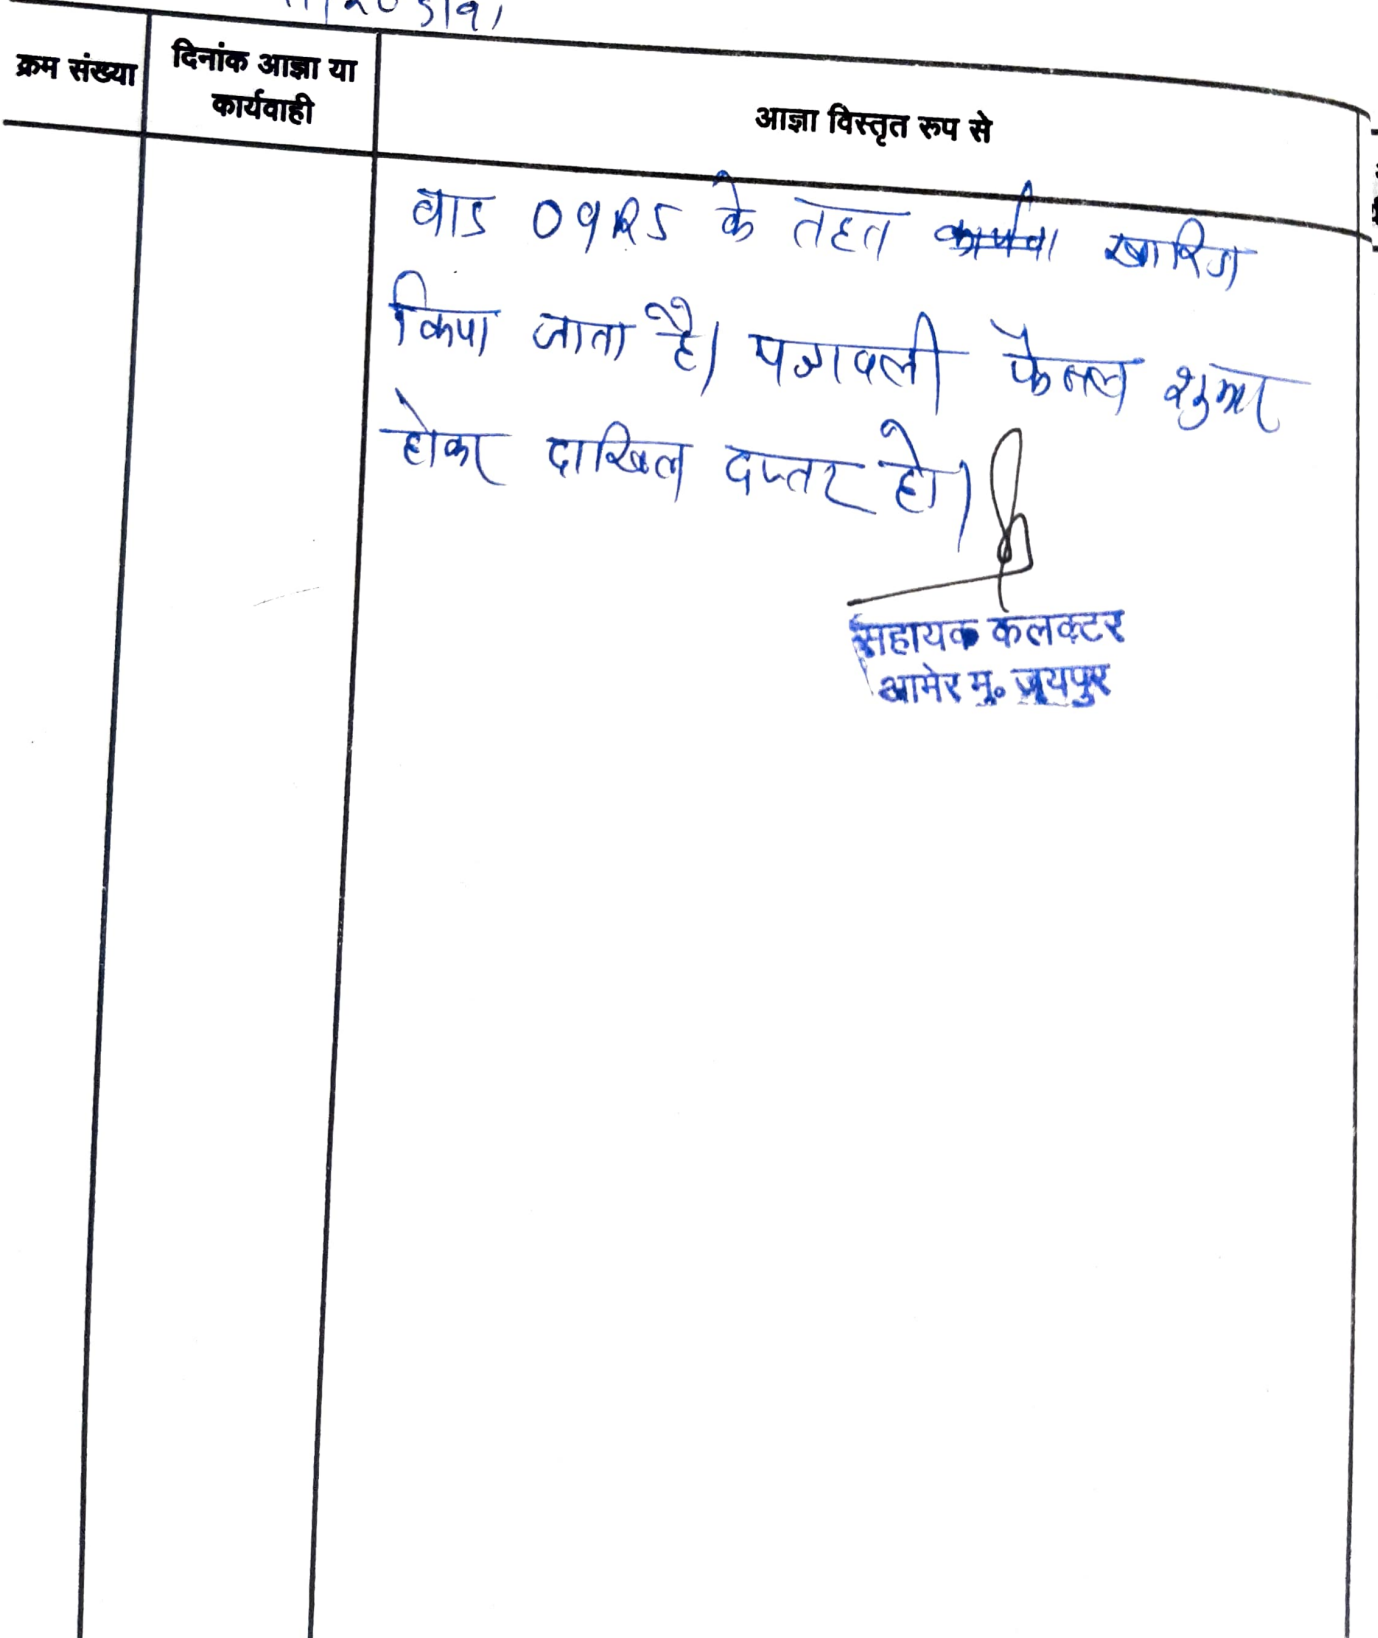 क्रम संख्या
दिनांक आज्ञा या
कार्यवाही
आज्ञा विस्तृत रूप से
वाद O9R5 के तहत खारिज
किया जाता है। पत्रावली फैसल शुमार
होकर दाखिल दफ्तर हो।
सहायक कलक्टर
आमेर मु० जयपुर